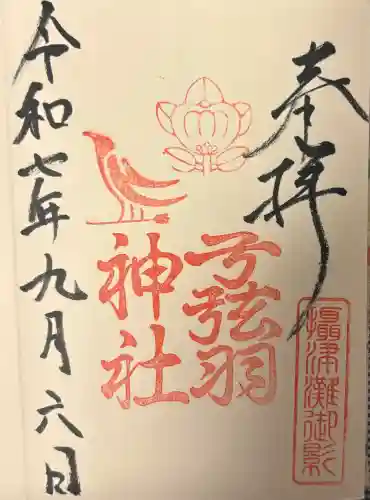 奉拝
摂津灘御影
弓弦羽
神社
令和七年九月六日